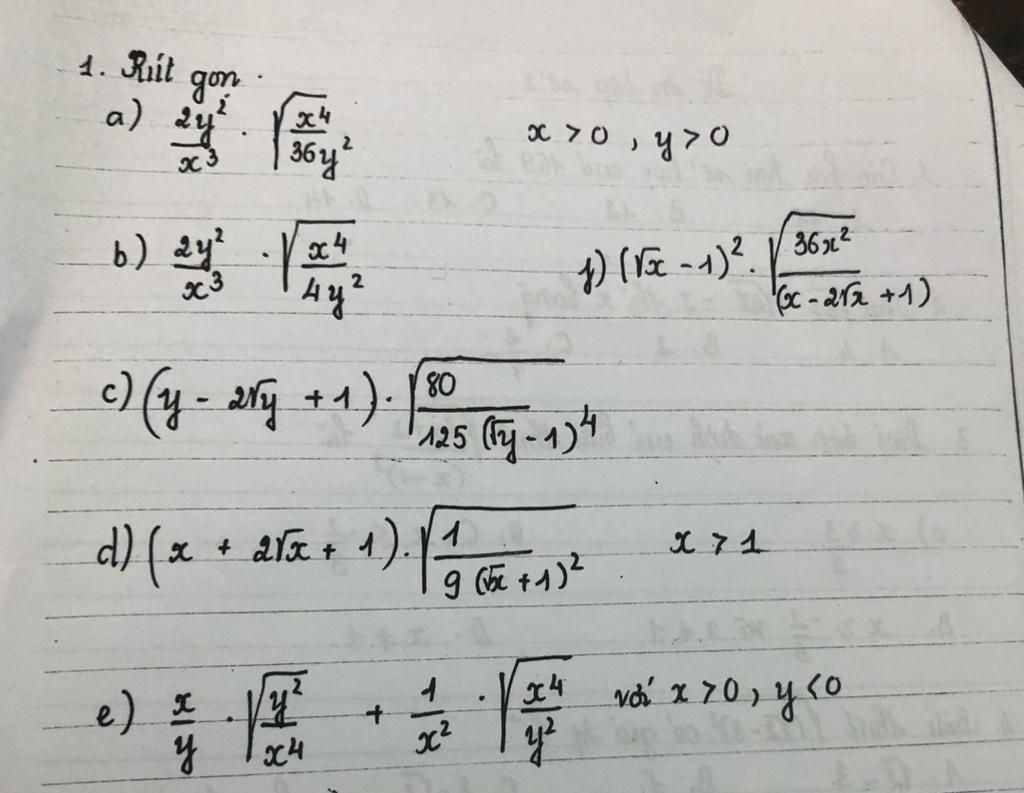 1. Rút gọn.
a) \frac{2y^2}{x^3} . \sqrt{\frac{x^4}{36y^2}} x > 0 , y > 0
b) \frac{2y^2}{x^3} . \sqrt{\frac{x^4}{4y^2}} f) (\sqrt{x} - 1)^2 . \sqrt{\frac{36x^2}{(x - 2\sqrt{x} + 1)}}
c) (y - 2\sqrt{y} + 1) . \sqrt{\frac{80}{125(\sqrt{y} - 1)^4}}
d) (x + 2\sqrt{x} + 1) . \sqrt{\frac{1}{9(\sqrt{x} + 1)^2}} x > 1
e) \frac{x}{y} . \sqrt{\frac{y^2}{x^4}} + \frac{1}{x^2} . \sqrt{\frac{x^4}{y^2}} với x > 0, y < 0